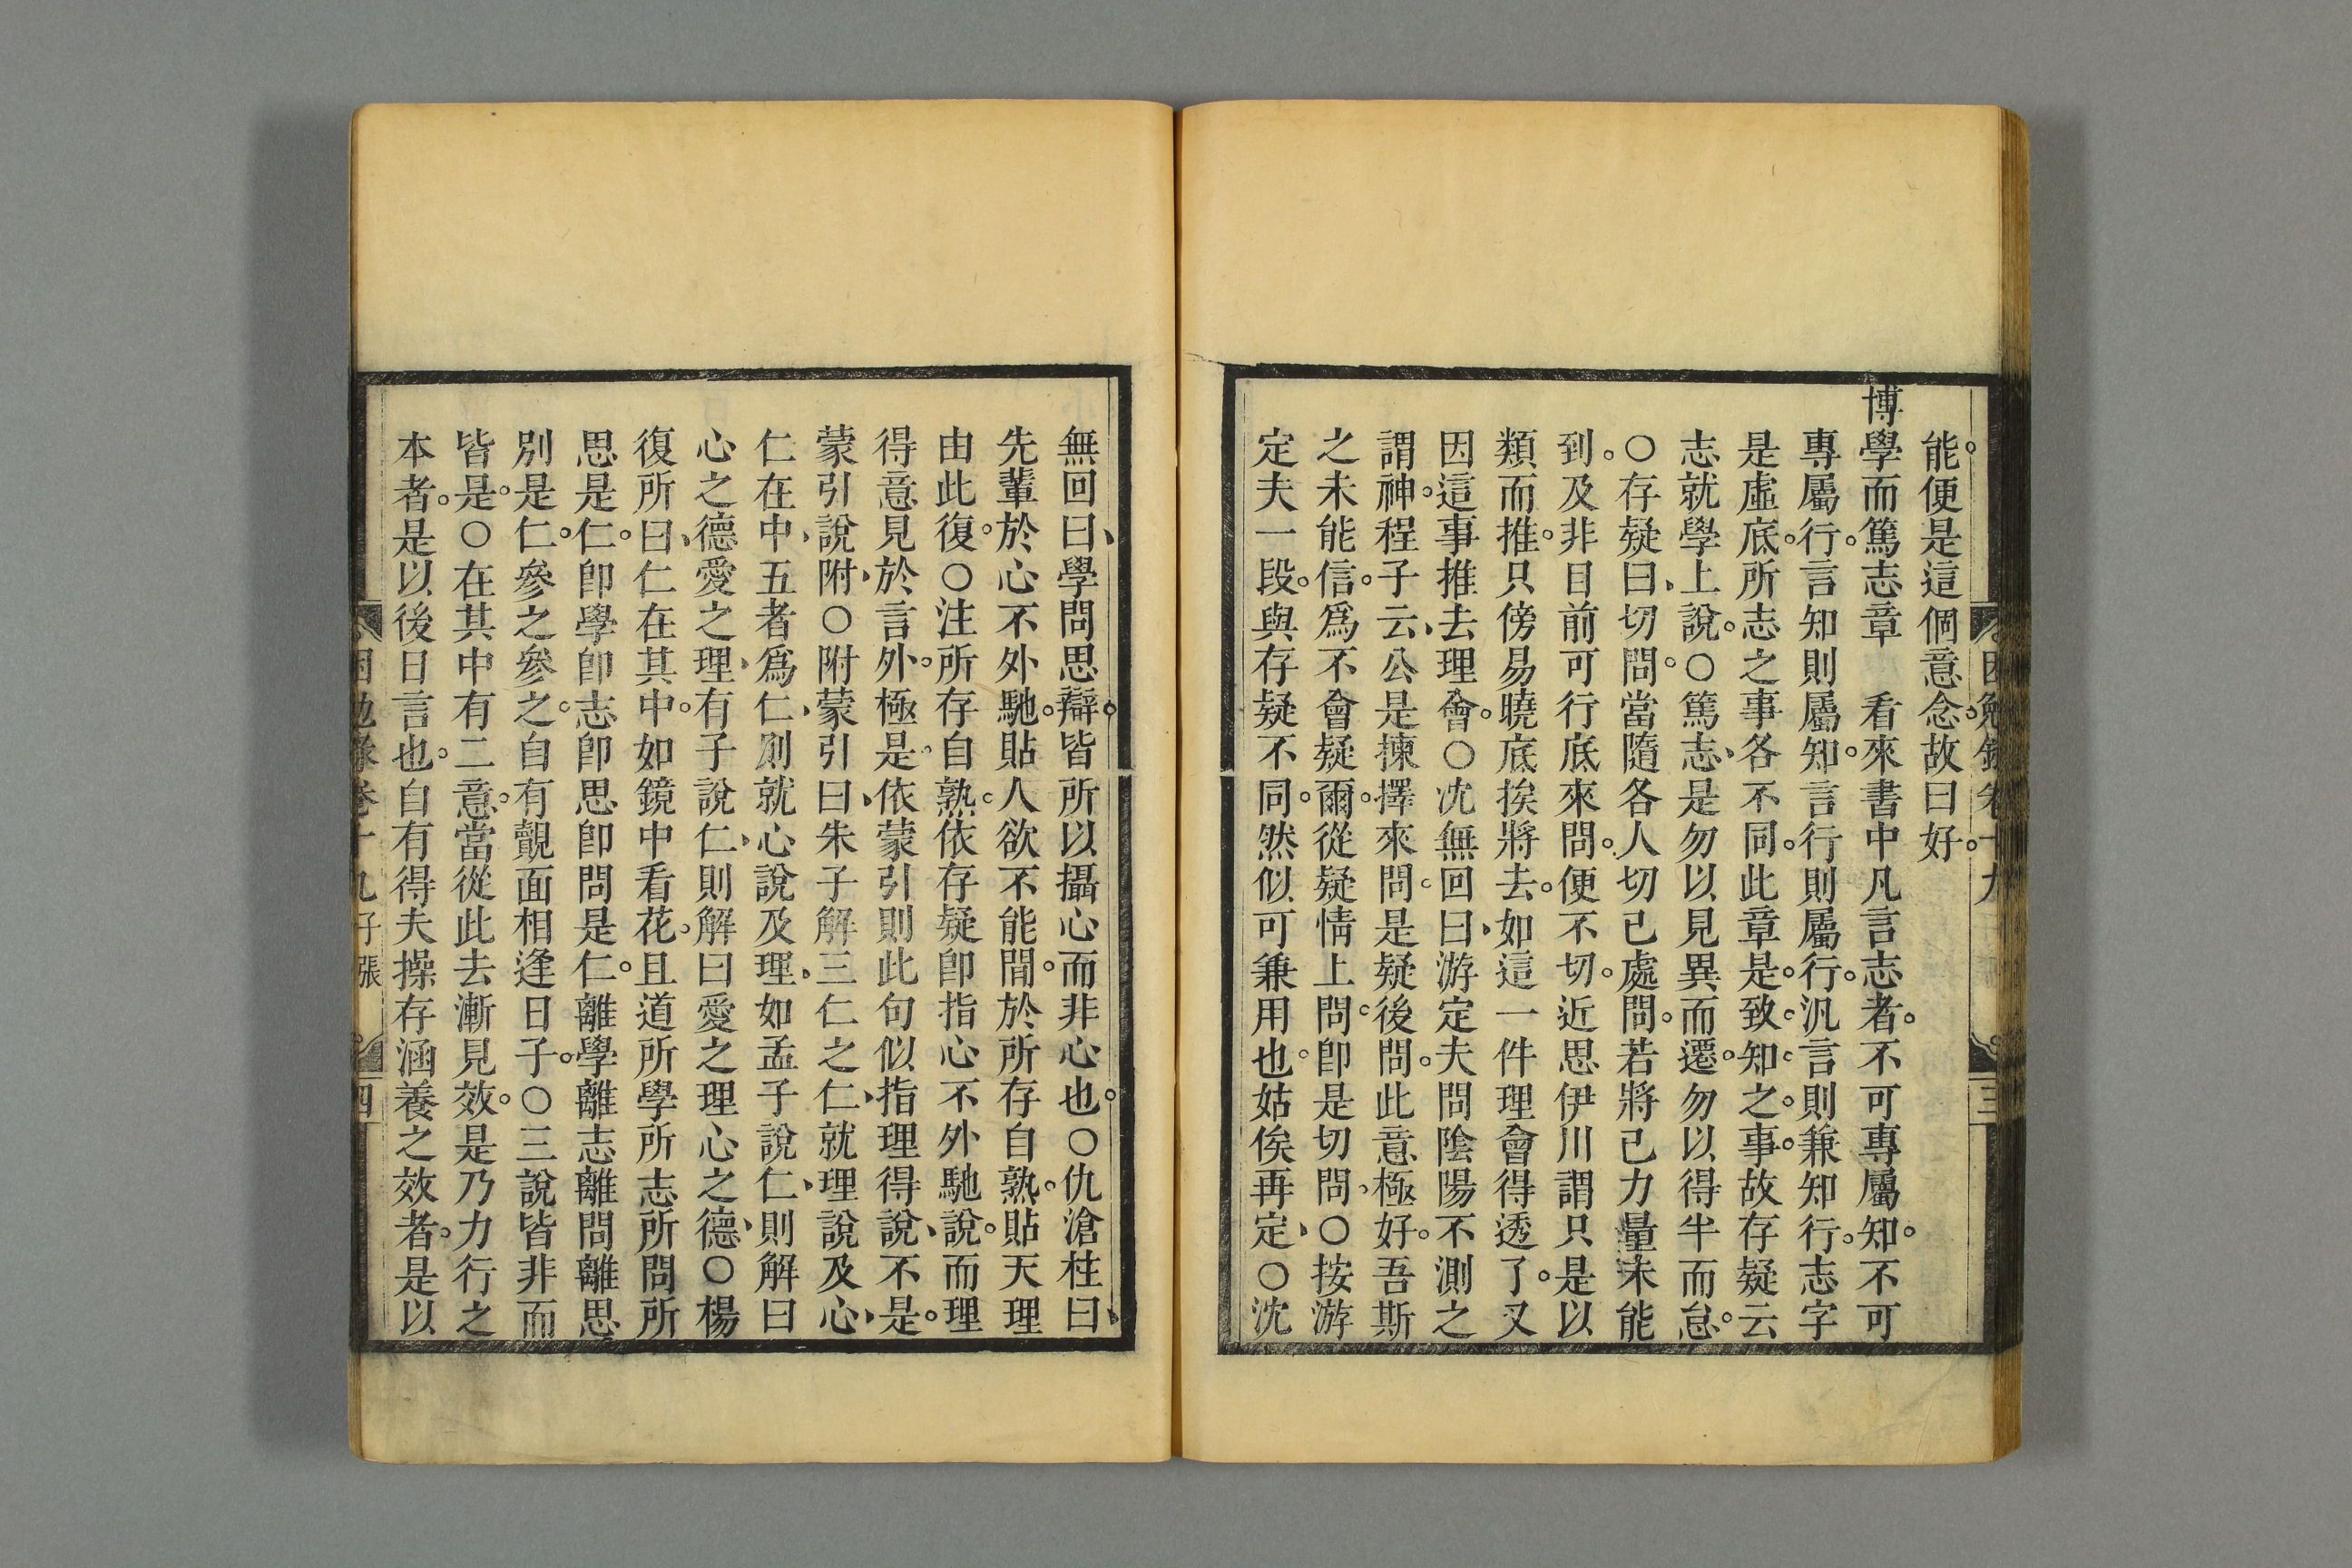 困勉錄卷十九
三
能。便是這個意念。故曰好。
博學而篤志章　看來書中凡言志者。不可專屬知。不可
專屬行。言知則屬知。言行則屬行。汎言則兼知行。志字
是虛底。所志之事各不同。此章是。致。知。之。事。故存疑云
志就學上說。○篤志、是勿以見異而遷。勿以得半而怠。
○存疑曰、切問。當隨各人切己處問。若將己力量未能
到。及非目前可行底來問。便不切。近思伊川謂只是以
類而推。只傍易曉底挨將去。如這一件理會得透了。又
因這事推去理會。○沈無回曰、游定夫問陰陽不測之
謂神。程子云、公是揀擇來問。是疑後問。此意極好。吾斯
之未能信。爲不會疑爾。從疑情上問。卽是切問、○按游
定夫一段。與存疑不同。然似可兼用也。姑俟再定、○沈
無回曰、學問思辯。皆所以攝心而非心也。○仇滄柱曰、
先輩於心不外馳。貼人欲不能間。於所存自熟。貼天理
由此復。○注所存自熟。依存疑卽指心不外馳說。而理
得意見於言外。極是。依蒙引則此句似指理得說、不是。
蒙引說附、○附蒙引曰、朱子解三仁之仁、就理說及心、
仁在中、五者爲仁、則就心說及理、如孟子說仁、則解曰
心之德愛之理、有子說仁、則解曰愛之理心之德、○楊
復所曰、仁在其中。如鏡中看花。且道所學所志所問所
思是仁。卽學卽志卽思卽問是仁。離學離志離問離思
別是仁。參之參之。自有覿面相逢日子。○三說皆非而
皆是。○在其中有二意。當從此去漸見效。是乃力行之
本者。是以後日言也。自有得夫操存涵養之效者。是以
困勉錄卷十九子張
四